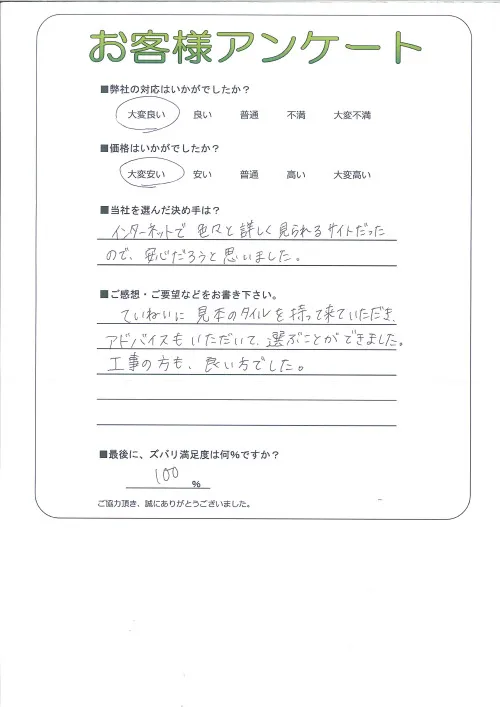 お客様アンケート
■弊社の対応はいかがでしたか？
大変良い 良い 普通 不満 大変不満
■価格はいかがでしたか？
大変安い 安い 普通 高い 大変高い
■当社を選んだ決め手は？
インターネットで 色々と詳しく見られるサイトだった
ので、安心だろうと思いました。
■ご感想・ご要望などをお書き下さい。
ていねいに 見本のタイルを持って来ていただき、
アドバイスもいただいて、選ぶことができました。
工事の方も、良い方でした。
■最後に、ズバリ満足度は何%ですか？
100 %
ご協力頂き、誠にありがとうございました。